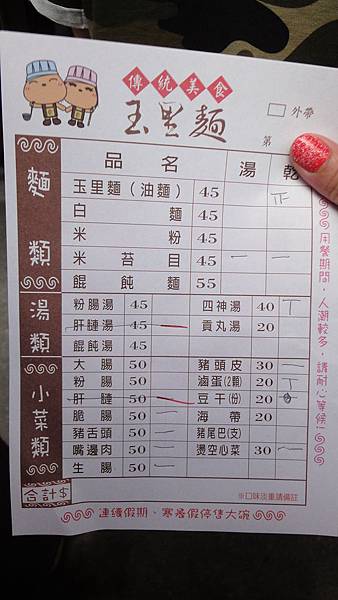 傳統美食
玉里麵
外帶
第
品名 湯 乾
麵類
玉里麵（油麵） 45 正
白麵 45
米粉 45
米苔目 45 一 一
餛飩麵 55
湯類
粉腸湯 45 四神湯 40 丅
肝腱湯 45 一 貢丸湯 20
餛飩湯 45
小菜類
大腸 50 豬頭皮 30 一
粉腸 50 滷蛋(2顆) 20 丅
肝腱 50 一 豆干(份) 20
脆腸 50 一 海帶 20
豬舌頭 50 一 豬尾巴(支)
嘴邊肉 50 一 燙空心菜 30 一
生腸 50 一
合計$
※口味淡重請備註
連續假期、寒暑假停售大碗
用餐期間，人潮較多，請耐心等候！